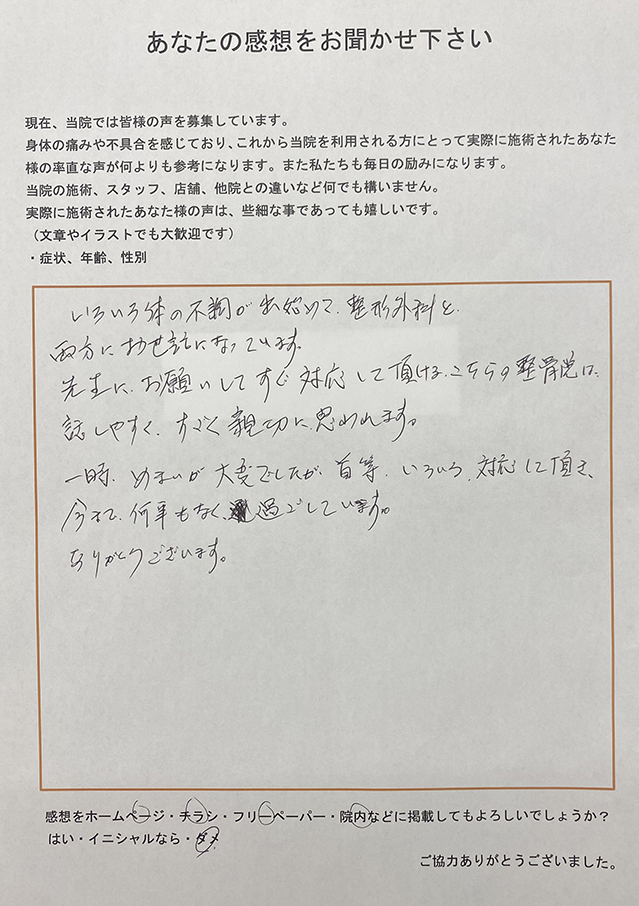 あなたの感想をお聞かせ下さい
現在、当院では皆様の声を募集しています。
身体の痛みや不具合を感じており、これから当院を利用される方にとって実際に施術されたあなた
様の率直な声が何よりも参考になります。また私たちも毎日の励みになります。
当院の施術、スタッフ、店舗、他院との違いなど何でも構いません。
実際に施術されたあなた様の声は、些細な事であっても嬉しいです。
（文章やイラストでも大歓迎です）
・症状、年齢、性別
いろいろ体の不調が出始めて、整形外科と、
両方にお世話になっています。
先生に、お願いしてすぐ対応して頂ける、こちらの整骨院は、
話しやすく、すごく親切に思われます。
一時、めまいが大変でしたが、首等、いろいろ、対応して頂き、
今まで、何事もなく、過ごしています。
ありがとうございます。
感想をホームページ・チラシ・フリーペーパー・院内などに掲載してもよろしいでしょうか？
はい・イニシャルなら・ダメ
ご協力ありがとうございました。